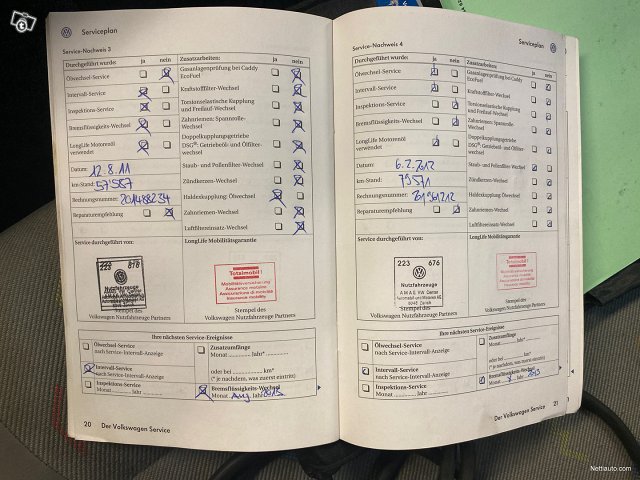 Serviceplan
Service-Nachweis 3
Durchgeführt wurde: ja nein
Ölwechsel-Service
Intervall-Service
Inspektions-Service
Bremsflüssigkeits-Wechsel
LongLife Motorenöl
verwendet
Datum: 12.8.11
km-Stand: 57557
Rechnungsnummer:
Reparaturempfehlung
Zusatzarbeiten: ja nein
Gasanlagenprüfung bei Caddy
EcoFuel
Kraftstofffilter-Wechsel
Torsionselastische Kupplung
und Freilauf-Wechsel
Zahnriemen: Spannrolle-
Wechsel
Doppelkupplungsgetriebe
DSG®: Getriebeöl- und Ölfilter-
wechsel
Staub- und Pollenfilter-Wechsel
Zündkerzen-Wechsel
Haldexkupplung: Ölwechsel
Zahnriemen-Wechsel
Luftfiltereinsatz-Wechsel
Service durchgeführt von:
223 678
Nutzfahrzeuge
Stempel des
Volkswagen Nutzfahrzeuge Partners
LongLife Mobilitätsgarantie
Totalmobil!
Mobilitätsversicherung
Assurance mobilité
Assicurazione di mobilità
Insurance mobility
Stempel des
Volkswagen Nutzfahrzeuge Partners
Ihre nächsten Service-Ereignisse
Ölwechsel-Service
nach Service-Intervall-Anzeige
Intervall-Service
nach Service-Intervall-Anzeige
Inspektions-Service
Monat ............ Jahr ............
Zusatzumfänge
Monat ............ Jahr* ............
oder bei ............ km*
(* je nachdem, was zuerst eintritt)
Bremsflüssigkeits-Wechsel
Monat Aug. Jahr 2013
20 Der Volkswagen Service
Serviceplan
Service-Nachweis 4
Durchgeführt wurde: ja nein
Ölwechsel-Service
Intervall-Service
Inspektions-Service
Bremsflüssigkeits-Wechsel
LongLife Motorenöl
verwendet
Datum: 6.2.2012
km-Stand: 79571
Rechnungsnummer:
Reparaturempfehlung
Zusatzarbeiten: ja nein
Gasanlagenprüfung bei Caddy
EcoFuel
Kraftstofffilter-Wechsel
Torsionselastische Kupplung
und Freilauf-Wechsel
Zahnriemen: Spannrolle-
Wechsel
Doppelkupplungsgetriebe
DSG®: Getriebeöl- und Ölfilter-
wechsel
Staub- und Pollenfilter-Wechsel
Zündkerzen-Wechsel
Haldexkupplung: Ölwechsel
Zahnriemen-Wechsel
Luftfiltereinsatz-Wechsel
Service durchgeführt von:
223 676
Nutzfahrzeuge
Stempel des
Volkswagen Nutzfahrzeuge Partners
LongLife Mobilitätsgarantie
Totalmobil!
Stempel des
Volkswagen Nutzfahrzeuge Partners
Ihre nächsten Service-Ereignisse
Ölwechsel-Service
nach Service-Intervall-Anzeige
Intervall-Service
nach Service-Intervall-Anzeige
Inspektions-Service
Monat ............ Jahr ............
Zusatzumfänge
Monat ............ Jahr* ............
oder bei ............ km*
(* je nachdem, was zuerst eintritt)
Bremsflüssigkeits-Wechsel
Monat 8 Jahr 2013
Der Volkswagen Service 21
Nettiauto.com